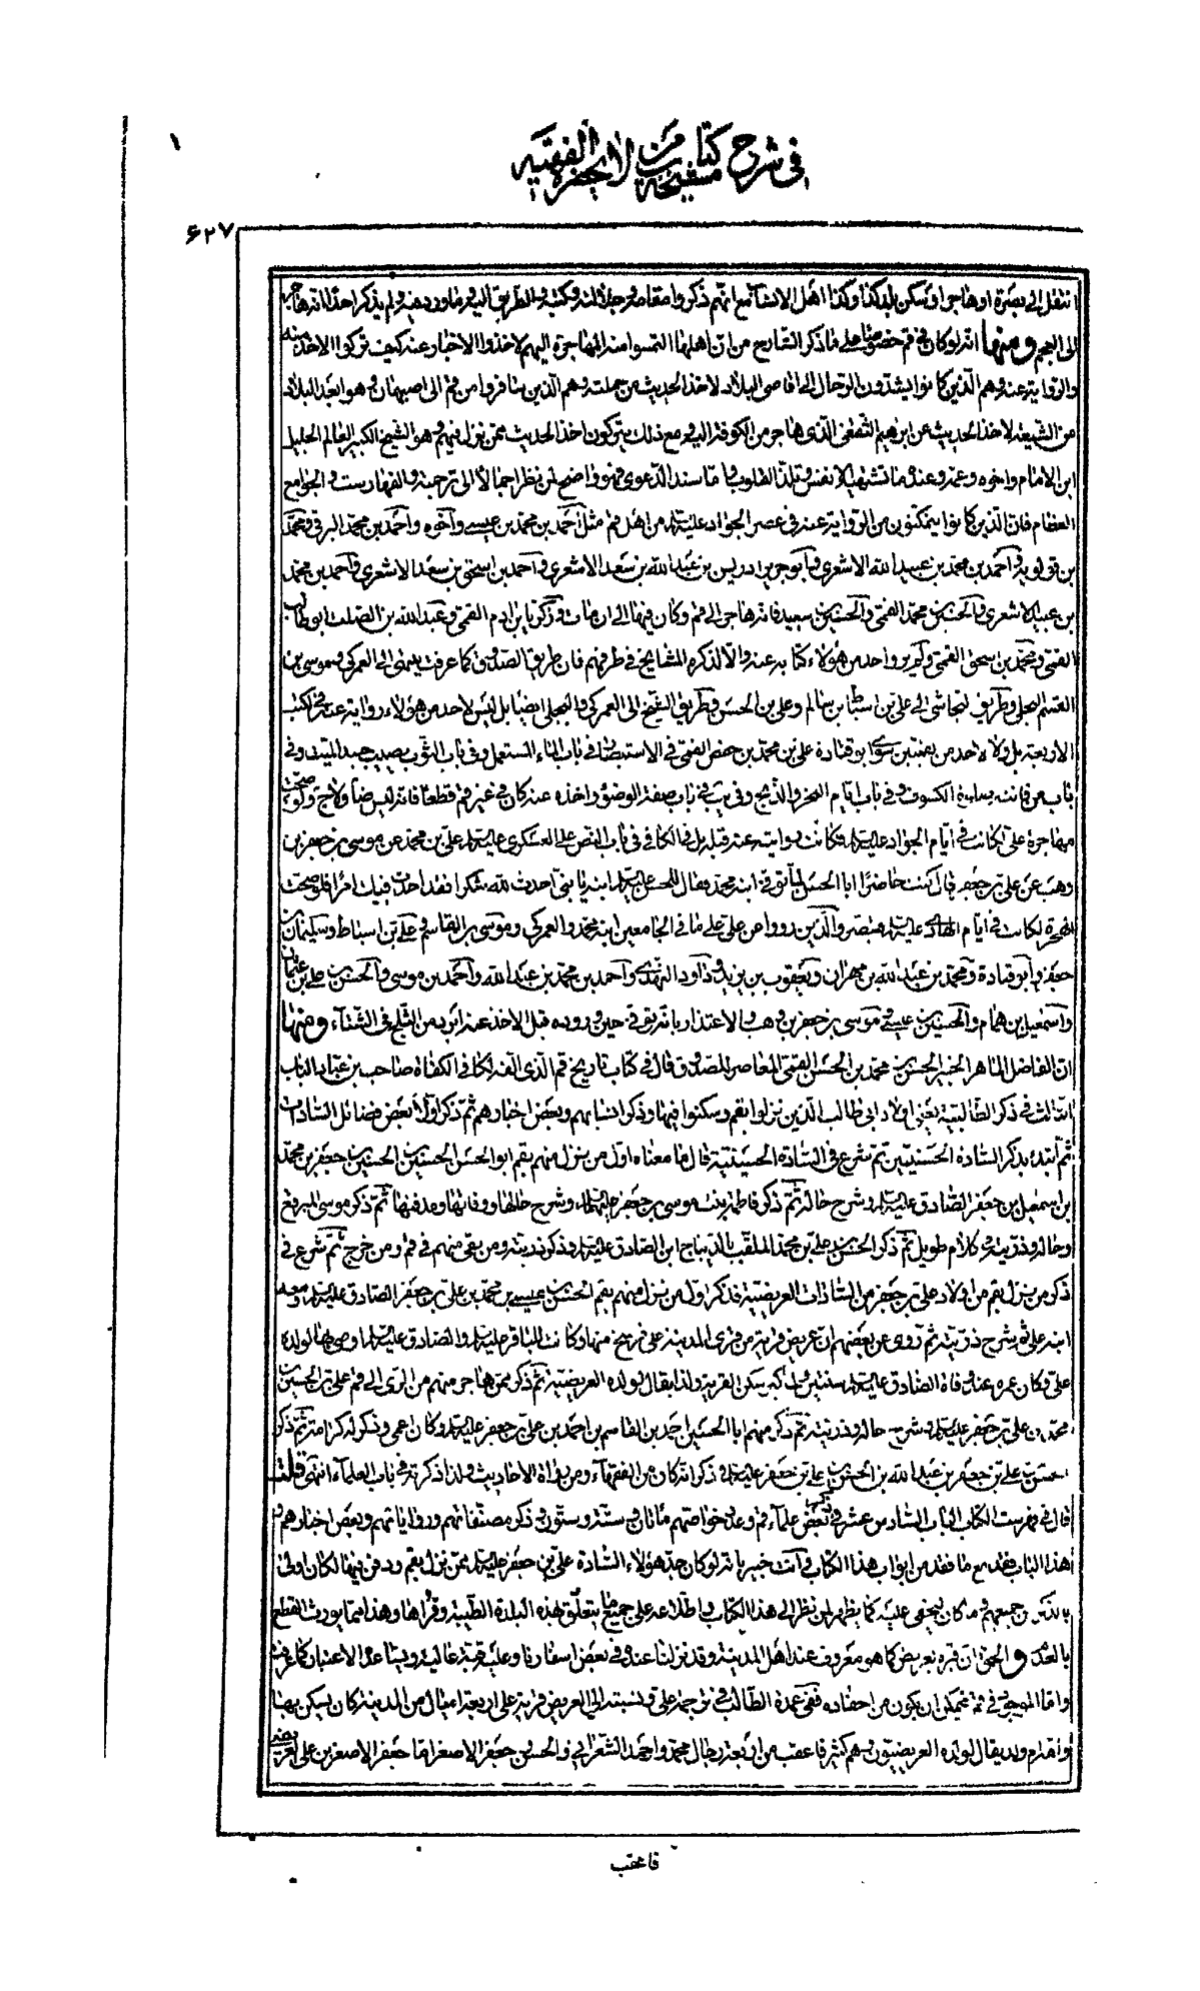 في شرح مشيخة كتاب من لا يحضره الفقيه
۶۲۷
انتقل إلى بصرة أو هاجر أو سكن بلد كذا وكذا أهل الانساب مع انهم ذكروا مقامه وجلالته وكتبه والطريق اليه وما ورد فيه ولم يذكر احد انه هاجر
الى العجم ومنها انه لو كان في قم خصوصا على ما ذكره الشارح من ان اهلها التمسوا منه المهاجرة اليهم لاخذوا الاخبار عنه كيف تركوا الاخذ منه
والرواية عنه وهم الذين كانوا يشدون الرحال الى اقاصي البلاد لاخذ الحديث من حملته وهم الذين سافروا من قم الى اصبهان وهو ابعد البلاد
من الشيعة لاخذ الحديث عن ابراهيم الثقفي الذي هاجر من الكوفة اليه ومع ذلك يتركون اخذ الحديث ممن نزل فيهم وهو الشيخ الكبير العالم الجليل
ابن الامام واخوه وعمه وعنده ما تشتهيه الانفس وتلذ القلوب واما سند الدعوى فهو واضح لمن نظر اجمالا الى ترجمته والفهارست والجوامع
العظام فان الذين كانوا يتمكنون من الرواية عنه في عصر الجواد عليه السلام من اهل قم مثل احمد بن محمد بن عيسى وأخوه واحمد بن محمد البرقي ومحمد
بن قولويه واحمد بن محمد بن عبيد الله الاشعري وابو جرير ادريس بن عبد الله بن سعد الاشعري واحمد بن اسحق بن سعد الاشعري واحمد بن محمد
بن عبيد الاشعري والحسين بن محمد القمي والحسين بن سعيد فانه هاجر الى قم وكان فيها الى ان مات وزكريا بن ادم القمي وعبد الله بن الصلت ابو طالب
القمي ومحمد بن اسحق القمي ولم يرو واحد من هؤلاء كتابه عنه والا لذكره المشايخ في طرقهم فان طريق الصدوق كما عرفت ينتهي الى العمركي وموسى بن
القسم البجلي وطريق النجاشي الى علي بن اسباط بن سالم وعلي بن الحسن وطريق الشيخ الى العمركي والبجلي ايضا بل ليس لاحد من هؤلاء رواية عنه في الكتب
الاربعة بل ولا لاحد من بقيتهن سوى ابو قتادة علي بن محمد بن حفص القمي في الاستبصار في باب الماء المستعمل وفي باب الثوب يصيب جسد الميت وفي
باب من فاتته صلوة الكسوف وفي باب ايام النحر والذبح وفي يب في باب صفة الوضوء واخذه عنه كان في غير قم قطعا فانه ليس ولو صحت
مهاجرة علي لكانت في ايام الجواد عليه السلام وكانت روايته عنه قبله بل في الكافي في باب النص على العسكري عليه السلام علي بن محمد عن موسى بن جعفر بن
وهب عن علي بن جعفر قال كنت حاضرا ابا الحسن لما توفي ابنه محمد فقال للحسن عليه السلام ابنه يا بني احدث لله شكرا فقد احدث فيك امرا فلو صحت
الهجرة لكانت في ايام الهادي عليه السلام والذين رووا عن علي على ما في الجامعين ابنه محمد والعمركي وموسى بن القاسم وعلي بن اسباط وسليمان بن
جعفر وابو قتادة ومحمد بن عبد الله بن مهران ويعقوب بن يزيد وداود النهدي واحمد بن محمد بن عبد الله واحمد بن موسى والحسن بن علي بن عثمان
واسمعيل بن همام والحسين بن عيسى وموسى بن جعفر بن وهب والاعتذار بانه توفي حين وروده قبل الاخذ عنه ابرد من الثلج في الشتاء ومنها
ان الفاضل الماهر الخبير الحسن بن محمد بن الحسن القمي المعاصر للصدوق قال في كتاب تاريخ قم الذي الفه لكافي الكفاة صاحب بن عباد الباب
الثالث في ذكر الطالبية يعني اولاد ابي طالب الذين نزلوا بقم وسكنوا فيها وذكر انسابهم وبعض اخبارهم ثم ذكر اولا بعض فضائل السادات
ثم ابتدء بذكر السادة الحسنيين ثم شرع في السادة الحسينية قال ما معناه اول من نزل منهم بقم ابو الحسن الحسين بن الحسين بن جعفر بن محمد
بن اسمعيل بن جعفر الصادق عليه السلام وشرح حاله ثم ذكر فاطمة بنت موسى بن جعفر عليهما السلام وشرح حالها ووفاتها ومدفنها ثم ذكر موسى المبرقع
وحاله وذريته في كلام طويل ثم ذكر الحسن بن علي بن محمد الملقب بالديباج ابن الصادق عليه السلام وذكر ذريته ومن بقي منهم في قم ومن خرج ثم شرع في
ذكر من نزل بقم من اولاد علي بن جعفر من السادات العريضية فذكر اول من نزل منهم بقم الحسن بن عيسى بن محمد بن علي بن جعفر الصادق عليه السلام ومعه
ابنه علي وشرح ذريته ثم روى عن بعضهم ان عريض قرية من قرى المدينة على فرسخ منها وكانت للباقر عليه السلام والصادق عليه السلام اوصى بها لولده
علي وكان عمره عند وفاة الصادق عليه السلام سنتين ولما كبر سكن القرية ولذا يقال لولده العريضية ثم ذكر ممن هاجر منهم من الري الى قم علي بن الحسين بن
محمد بن علي بن جعفر عليه السلام وشرح حاله وذريته ثم ذكر منهم ابا الحسين احمد بن القاسم بن احمد بن علي بن جعفر عليه السلام وكان اعمى وذكر له كرامة ثم ذكر
الحسن بن علي بن جعفر بن عبد الله بن الحسن بن علي بن جعفر عليه السلام وذكر انه كان من الفقهاء ومن رواة الاحاديث ولذا ذكرته في باب العلماء انتهى قلت
قال في فهرست الكتاب الباب السادس عشر في ذكر بعض علماء قم وعدد خواصهم مائتان وستة وستون وذكر مصنفاتهم ورواياتهم وبعض اخبارهم و
هذا الباب فقد مع ما فقد من ابواب هذا الكتاب وانت خبير بانه لو كان جد هؤلاء السادة علي بن جعفر عليه السلام ممن نزل بقم ودفن فيها لكان اولى
بالذكر من جميعهم وما كان ليخفى عليه كما يظهر لمن نظر الى هذا الكتاب واطلاعه على جميع ما يتعلق بهذه البلدة الطيبة وقراها وهذا مما يورث القطع
بالعدم والحق ان قبره بعريض كما هو معروف عند اهل المدينة وقد نزلنا عنده في بعض اسفارنا وعليه قبة عالية ويساعده الاعتبار كما عرفت
واما الموجود في قم فيمكن ان يكون من احفاده ففي عمدة الطالب في ترجمة علي ونسبته الى العريض قرية على اربعة اميال من المدينة كان يسكن بها
وامه ام ولد يقال لولده العريضيون وهم كثير فاعقب من اربعة رجال محمد واحمد الشعراني والحسن وجعفر الاصغر اما جعفر الاصغر بن علي العريضي
فاعقب